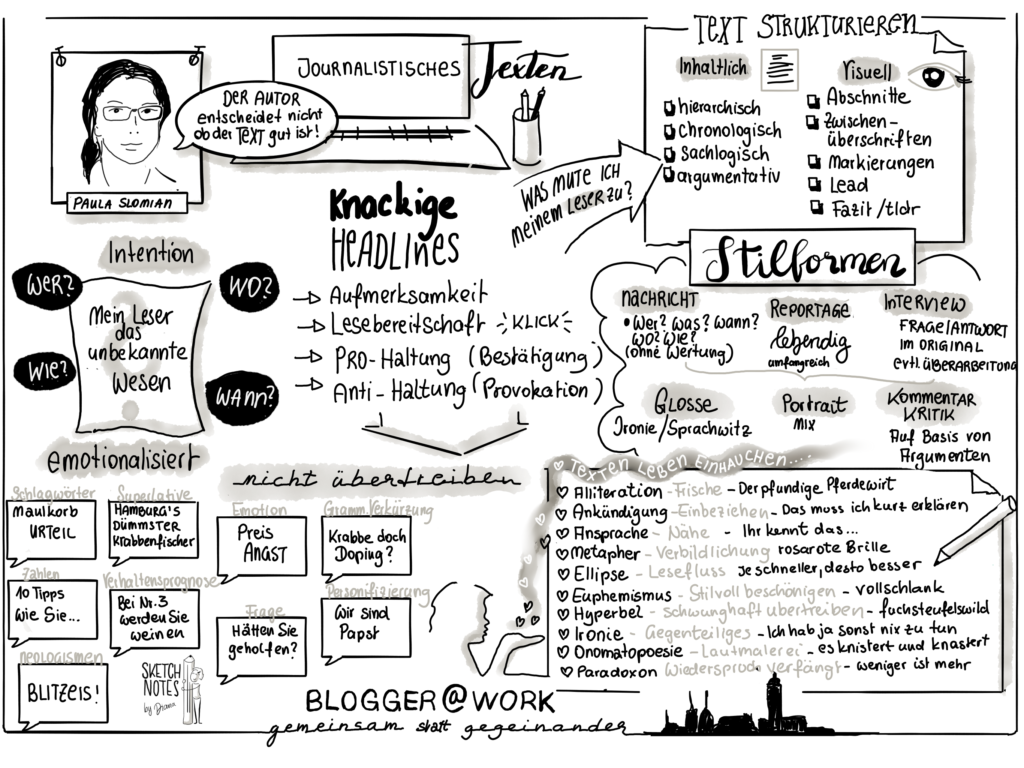 JOURNALISTISCHES Texten
DER AUTOR
entscheidet nicht
ob der TEXT gut ist!
PAULA SLOMIAN
TEXT STRUKTURIEREN
Inhaltlich
hierarchisch
chronologisch
sachlogisch
argumentativ
Visuell
Abschnitte
Zwischen-
überschriften
Markierungen
Lead
Fazit/tldr
WAS MUTE ICH
meinem LESER ZU?
Knackige
HEADLINES
Aufmerksamkeit
Lesebereitschaft KLICK
PRO-Haltung (Bestätigung)
Anti-Haltung (Provokation)
Intention
WER?
WO?
WIE?
WANN?
?
Mein Leser
das
unbekannte
Wesen
Stilformen
NACHRICHT
• Wer? Was? Wann?
WO? WIE?
(ohne Wertung)
REPORTAGE
lebendig
umfangreich
INTERVIEW
FRAGE/ANTWORT
IM ORIGINAL
evtl. ÜBERARBEITUNG
GLOSSE
Ironie/Sprachwitz
Portrait
MIX
KOMMENTAR
KRITIK
Auf Basis von
Argumenten
emotionalisiert
nicht übertreiben
Schlagwörter
Maulkorb
URTEIL
Superlative
HAMBURG'S
DÜMMSTER
Krabbenfischer
Zahlen
10 Tipps
Wie Sie...
Verhaltensprognose
Bei Nr. 3
werden Sie
weinen
Neologismen
BLITZEIS!
Emotion
Preis
ANGST
Gramm. Verkürzung
Krabbe doch
Doping?
Frage
Hätten Sie
geholfen?
Personifizierung
Wir sind
Papst
SKETCH
NOTES
by Diana
TEXTEN LEBEN EINHAUCHEN....
Alliteration - Frische - Der pfundige Pferdewirt
Ankündigung - Einbeziehen - Das muss ich kurz erklären
Ansprache - Nähe - Ihr kennt das...
Metapher - Verbildlichung rosarote Brille
Ellipse - Lesefluss Je schneller, desto besser
Euphemismus - Stilvoll beschönigen - vollschlank
Hyperbel - schwunghaft übertreiben - fuchsteufelswild
Ironie - Gegenteiliges - Ich hab ja sonst nix zu tun
Onomatopoesie - Lautmalerei - es knistert und knastert
Paradoxon Wiederspruch verfängt - weniger ist mehr
BLOGGER@WORK
gemeinsam statt gegeinander